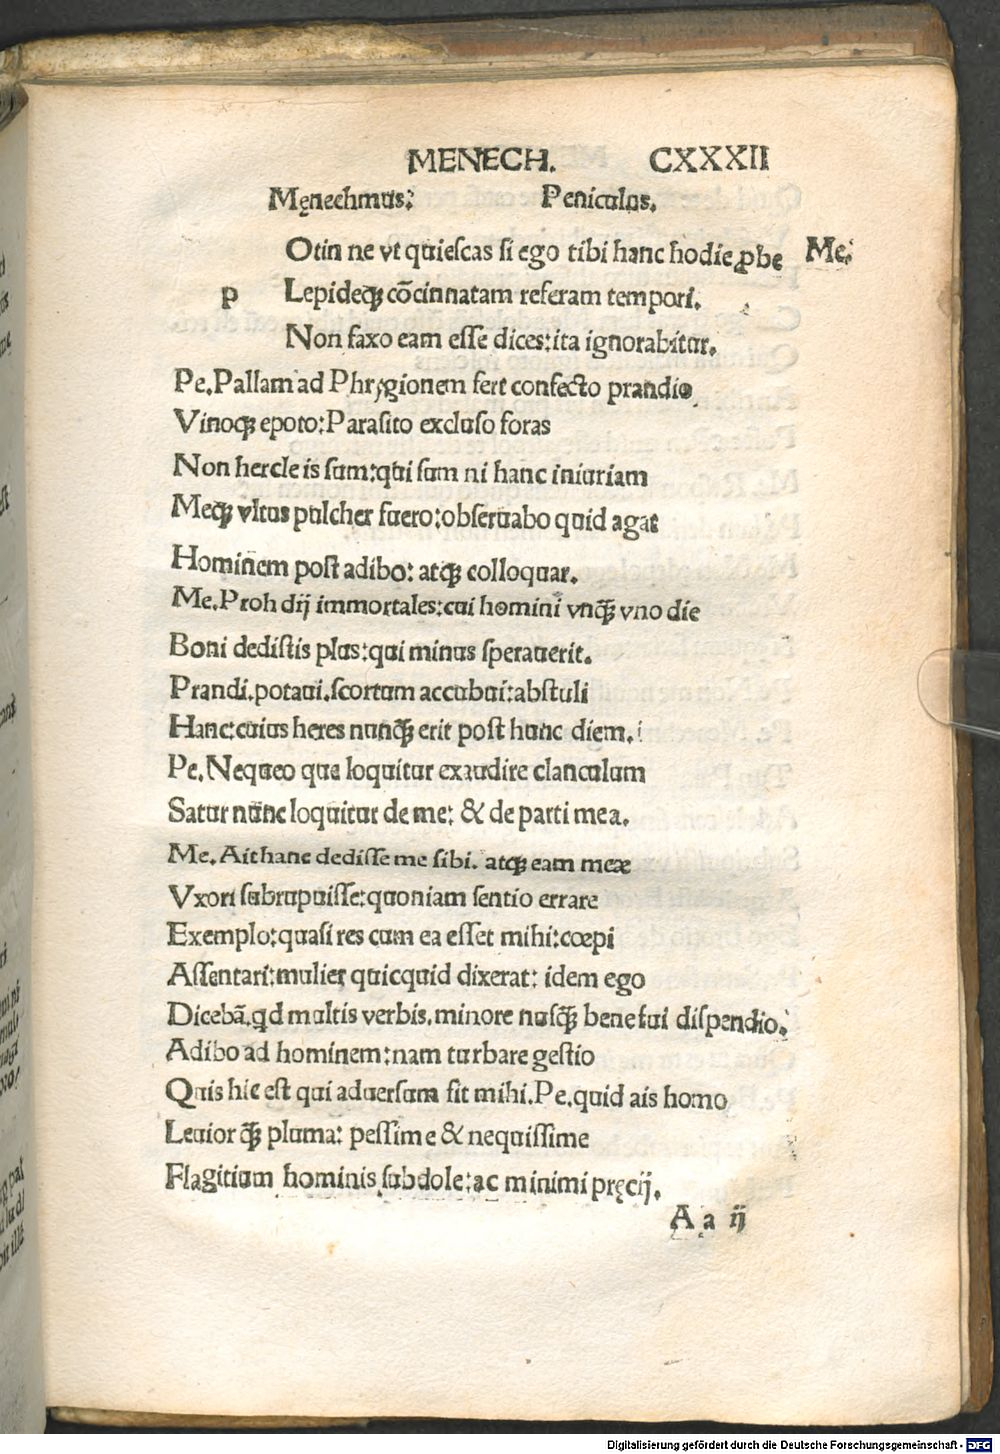 MENECH. CXXXII
Męnechmus: Peniculus.
Otin ne vt quiescas si ego tibi hanc hodie ꝓbe Me.
p Lepideqꝫ cōcinnatam referam tempori.
Non faxo eam esse dices:ita ignorabitur.
Pe.Pallam ad Phrygionem fert confecto prandio
Vinoqꝫ epoto:Parasito excluso foras
Non hercle is sum:qui sum ni hanc iniuriam
Meqꝫ vltus pulcher fuero:obseruabo quid agat
Hominem post adibo: atqꝫ colloquar.
Me.Proh dij immortales:cui homini vnqꝫ vno die
Boni dedistis plus:qui minus sperauerit.
Prandi.potaui.scortum accubui:abstuli
Hanc:cuius heres nunqꝫ erit post hunc diem.
Pe.Nequeo que loquitur exaudire clanculum
Satur nunc loquitur de me: & de parti mea.
Me. Ait hanc dedisse me sibi. atqꝫ eam meæ
Vxori subrupuisse:quoniam sentio errare
Exemplo:quasi res cum ea esset mihi:cœpi
Assentari:mulier quicquid dixerat: idem ego
Dicebā.qd multis verbis.minore nusqꝫ bene fui dispendio.
Adibo ad hominem:nam turbare gestio
Quis hic est qui aduersum fit mihi.Pe.quid ais homo
Leuior qꝫ pluma: pessime & nequissime
Flagitium hominis subdole:ac minimi pręcij.
A a ij
Digitalisierung gefördert durch die Deutsche Forschungsgemeinschaft - DFG